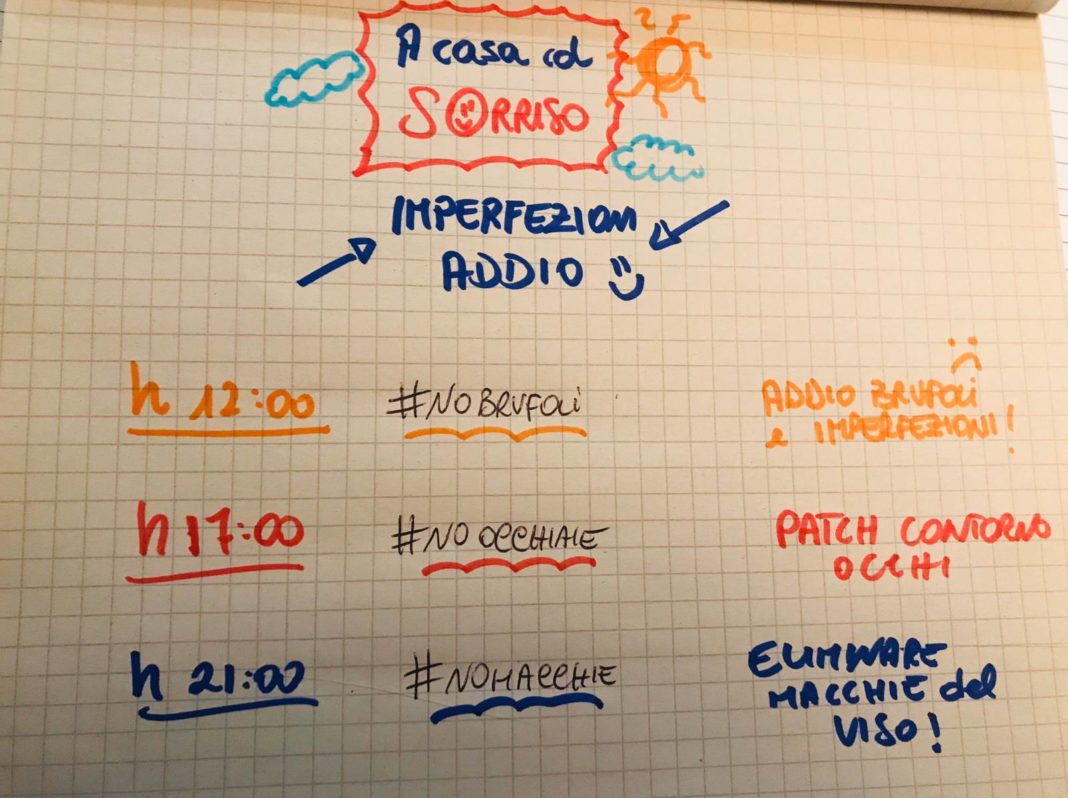 A casa col
SORRISO
IMPERFEZIONI
ADDIO
h 12:00 #NOBRUFOLi ADDIO BRUFOLi
e IMPERFEZIONI!
h 17:00 #NOOCCHIAIE PATCH CONTORNO
OCCHI
h 21:00 #NOMACCHIE ELIMINARE
MACCHIE del
VISO!